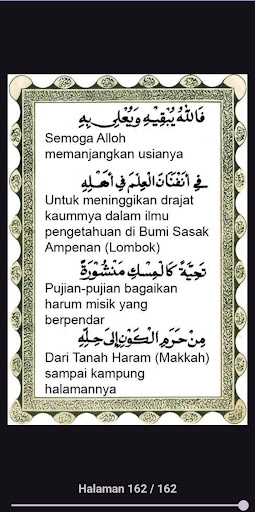 فَاللّٰهُ يُبْقِيْهِ وَيُعْلِى بِهِ
Semoga Alloh
memanjangkan usianya
فِي أَفْنَانِ الْعِلْمِ فِي أَهْلِهِ
Untuk meninggikan drajat
kaummya dalam ilmu
pengetahuan di Bumi Sasak
Ampenan (Lombok)
تَحِيَّةً كَالْمِسْكِ مَنْشُوْرَةً
Pujian-pujian bagaikan
harum misik yang
berpendar
مِنْ حَرَمِ الْكَوْنِ إِلَى حِلِّهِ
Dari Tanah Haram (Makkah)
sampai kampung
halamannya
Halaman 162 / 162